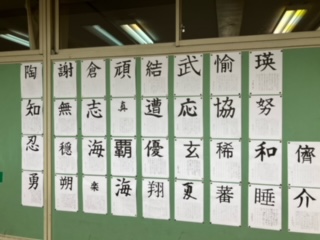 陶 謝 倉 頑 結 武 愉 瑛
知 無 志 真 遭 応 協 努
忍 穏 海 覇 優 玄 稀 和 儕
勇 朔 楽 海 翔 夏 蕃 睡 介